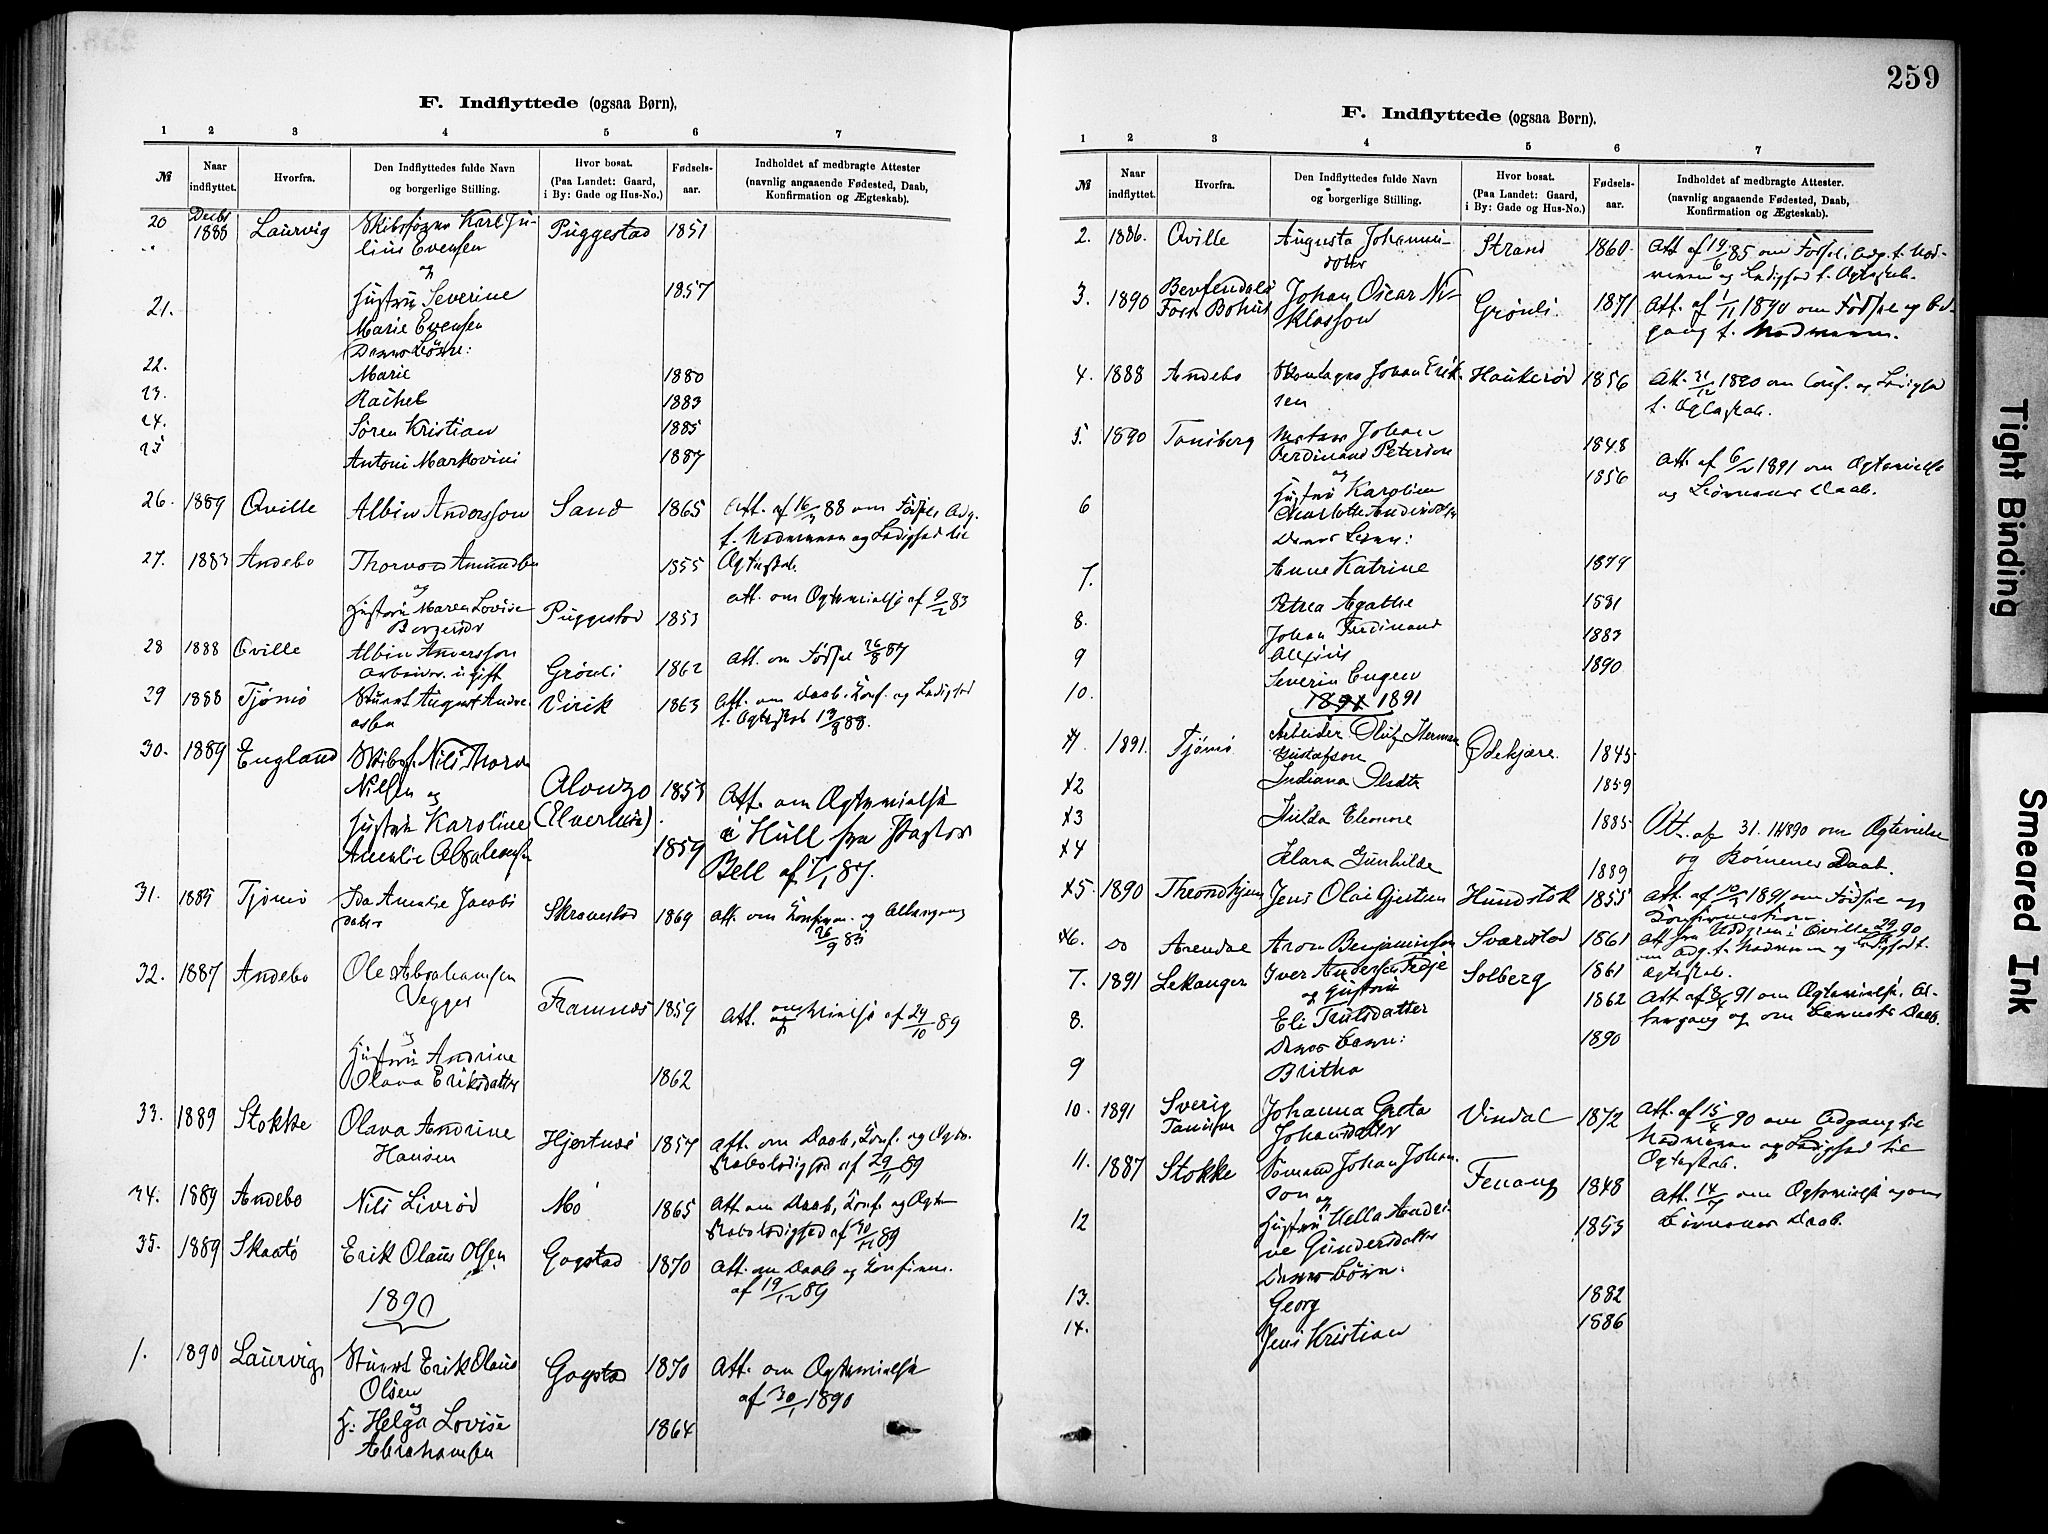 F. Indflyttede (ogsaa Børn),
1 2 3 4 5 6 7
№ Naar indflyttet. Hvorfra. Den Indflyttedes fulde Navn og borgerlige Stilling. Hvor bosat. (Paa Landet: Gaard, i By: Gade og Hus-No.) Fødsels-aar. Indholdet af medbragte Attester (navnlig angaaende Fødested, Daab, Konfirmation og Ægteskab).
20 Decbr 1888 Laurvig Karl Ju- Puggestad 1851
lius Evensen
og
21. Hustru Severine 1857
Marie Evensen
Deres Børn:
22. Marie 1880
23. Rachel 1883
24. Søren Kristian 1885
25 Antoni Markovini 1887
26. 1889 Qville Albin Andersson Sand 1865 Att. af 16/3 88 om Fødsel, Adg.
t. Nadveren og Ledighed til
27. 1883 Andebo Thorvald Amundsen 1855 Ægteskab.
og
Hustru Maren Lovise Puggestad 1853 Att. om Ægtevielse af 9/2 83
28 1888 Qville Albin Andersson Grønli 1862 Att. om Fødsel 26/8 87
Arbeider. ugift
29 1888 Tjømø August Andre- Virik 1863 Att. om Daab. Konf. og Ledighed
asen t. Ægteskab 19/8 88.
30. 1889 England Nils Thorv. Alonzo 1853 Att. om Ægtevielse
Nilsen og
Hustru Karoline i Hull fra Pastor
Amalie Abrahamsen 1859 Bell af 7/1 87.
31. 1889 Tjømø Ida Amalie Jacobs- Skravestad 1869 Att. om Konfirm. og Altergang
datter 26/9 83
32. 1887 Andebo Ole Abrahamsen Framnæs 1859 Att. om Vielse af 29/10 89
Vegger
og
Hustru Andrine
Olava Eriksdatter 1862
33. 1889 Stokke Olava Andrine Hjertnæs 1857 Att. om Daab, Konf. og Ægte-
Hansen skabsledighed af 29/11 89
34. 1889 Andebo Nils Livrød Mo 1865 Att. om Daab, Konf. og Ægte-
skabsledighed af 30/11 89
35. 1889 Skaatø Erik Olaus Olsen Gogstad 1870 Att. om Daab og Konfirm.
af 19/12 89
1890
1. 1890 Laurvig Erik Olaus Gogstad 1870 Att. om Ægtevielse
Olsen af 30/1 1890
og
H: Helga Lovise 1864
Abrahamsen
259
F. Indflyttede (ogsaa Børn).
1 2 3 4 5 6 7
№ Naar indflyttet. Hvorfra. Den Indflyttedes fulde Navn og borgerlige Stilling. Hvor bosat. (Paa Landet: Gaard, i By: Gade og Hus-No.) Fødsels-aar. Indholdet af medbragte Attester. (navnlig angaaende Fødested, Daab, Konfirmation og Ægteskab).
2. 1886. Qville Augusta Johannis- Strand 1860 Att. af 19/6 85 om Fødsel. Adg. t. Nad-
dotter veren og Ledighed t. Ægteskab.
3. 1890 Johan Oscar Ni- Grønli 1871 Att. af 1/11 1890 om Fødsel og Ad-
klasson gang t. Nadveren.
4. 1888 Andebo Johan Erik- Haukerød 1856 Att. 31/12 1880 om Conf. og Ledighed
sen t. Ægteskab.
5. 1890 Tønsberg Johan 1848
Ferdinand Peterson
og 1856 Att. af 6/2 1891 om Ægtevielse
6 Hustru Karoline og Børnenes Daab.
Charlotte
Deres Børn:
7. Anne Katrine 1879
Petrea Agathe 1881
8. Johan Ferdinand 1883
9 Alexius 1890
10. Severin Eugen
1891 1891
1 1891. Tjømø Arbeider Oluf Herman Ødekjære 1845
Gustafson
2 Indiana Olsdtr 1859
3 Hilda Eleonore 1885 Att. af 31. 12 1890 om Ægtevielse
4 Klara Gunhilde 1889 og Børnenes Daab.
5. 1890 Throndhjem Jens Olai Gjertsen Hundstok 1855 Att. af 10/2 1891 om Fødsel og
Konfirmation
6. do Arendal Aron Benjaminson Svarstad 1861 Att. fra i Qville 90
om Adg. t. Nadveren og Ledighed t.
7. 1891 Lekanger Iver Andersen Solberg 1861 Ægteskab.
og Hustru 1862 Att. af 91 om Ægtevielse, Al-
8. Eli Trulsdatter tergang og om Barnets Daab.
Deres Barn: 1890
9 Britha
10. 1891 Sverig Johanna Greta Vindal 1872 Att. af 15/4 90 om Adgang til
Tanum Johansdatter Nadveren og Ledighed til
11. 1887 Stokke Sømand Johan Johan- Fevang 1848 Ægteskab.
son og Att. 14/ om Ægtevielse og om
12 Hustru Hella Andri- 1853 Børnenes Daab.
ne Gundersdatter
Deres Børn:
13. Georg 1882
14. Jens Kristian 1886
Tight Binding
Smeared Ink